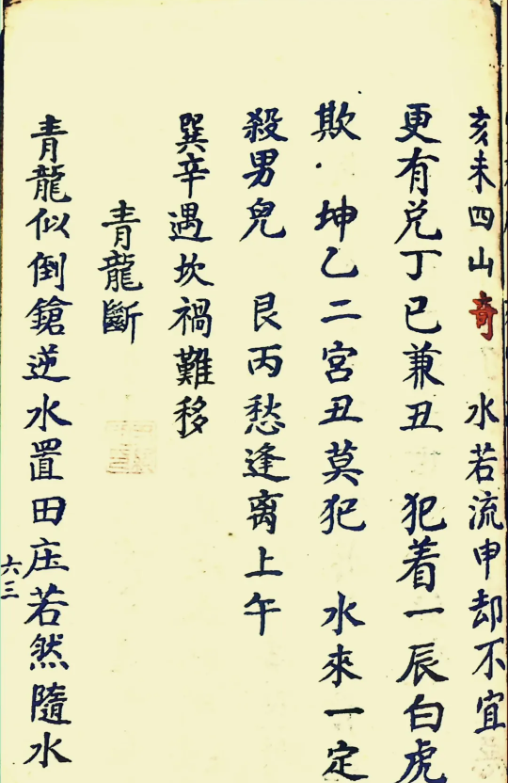 亥未四山奇 水若流申却不宜
更有兑丁巳兼丑 犯着一辰白虎
欺 坤乙二宮丑莫犯 水來一定
殺男兒 艮丙愁逢离上午
巽辛遇坎禍難移
青龍斷
青龍似倒鎗逆水置田庄若然隨水
六三